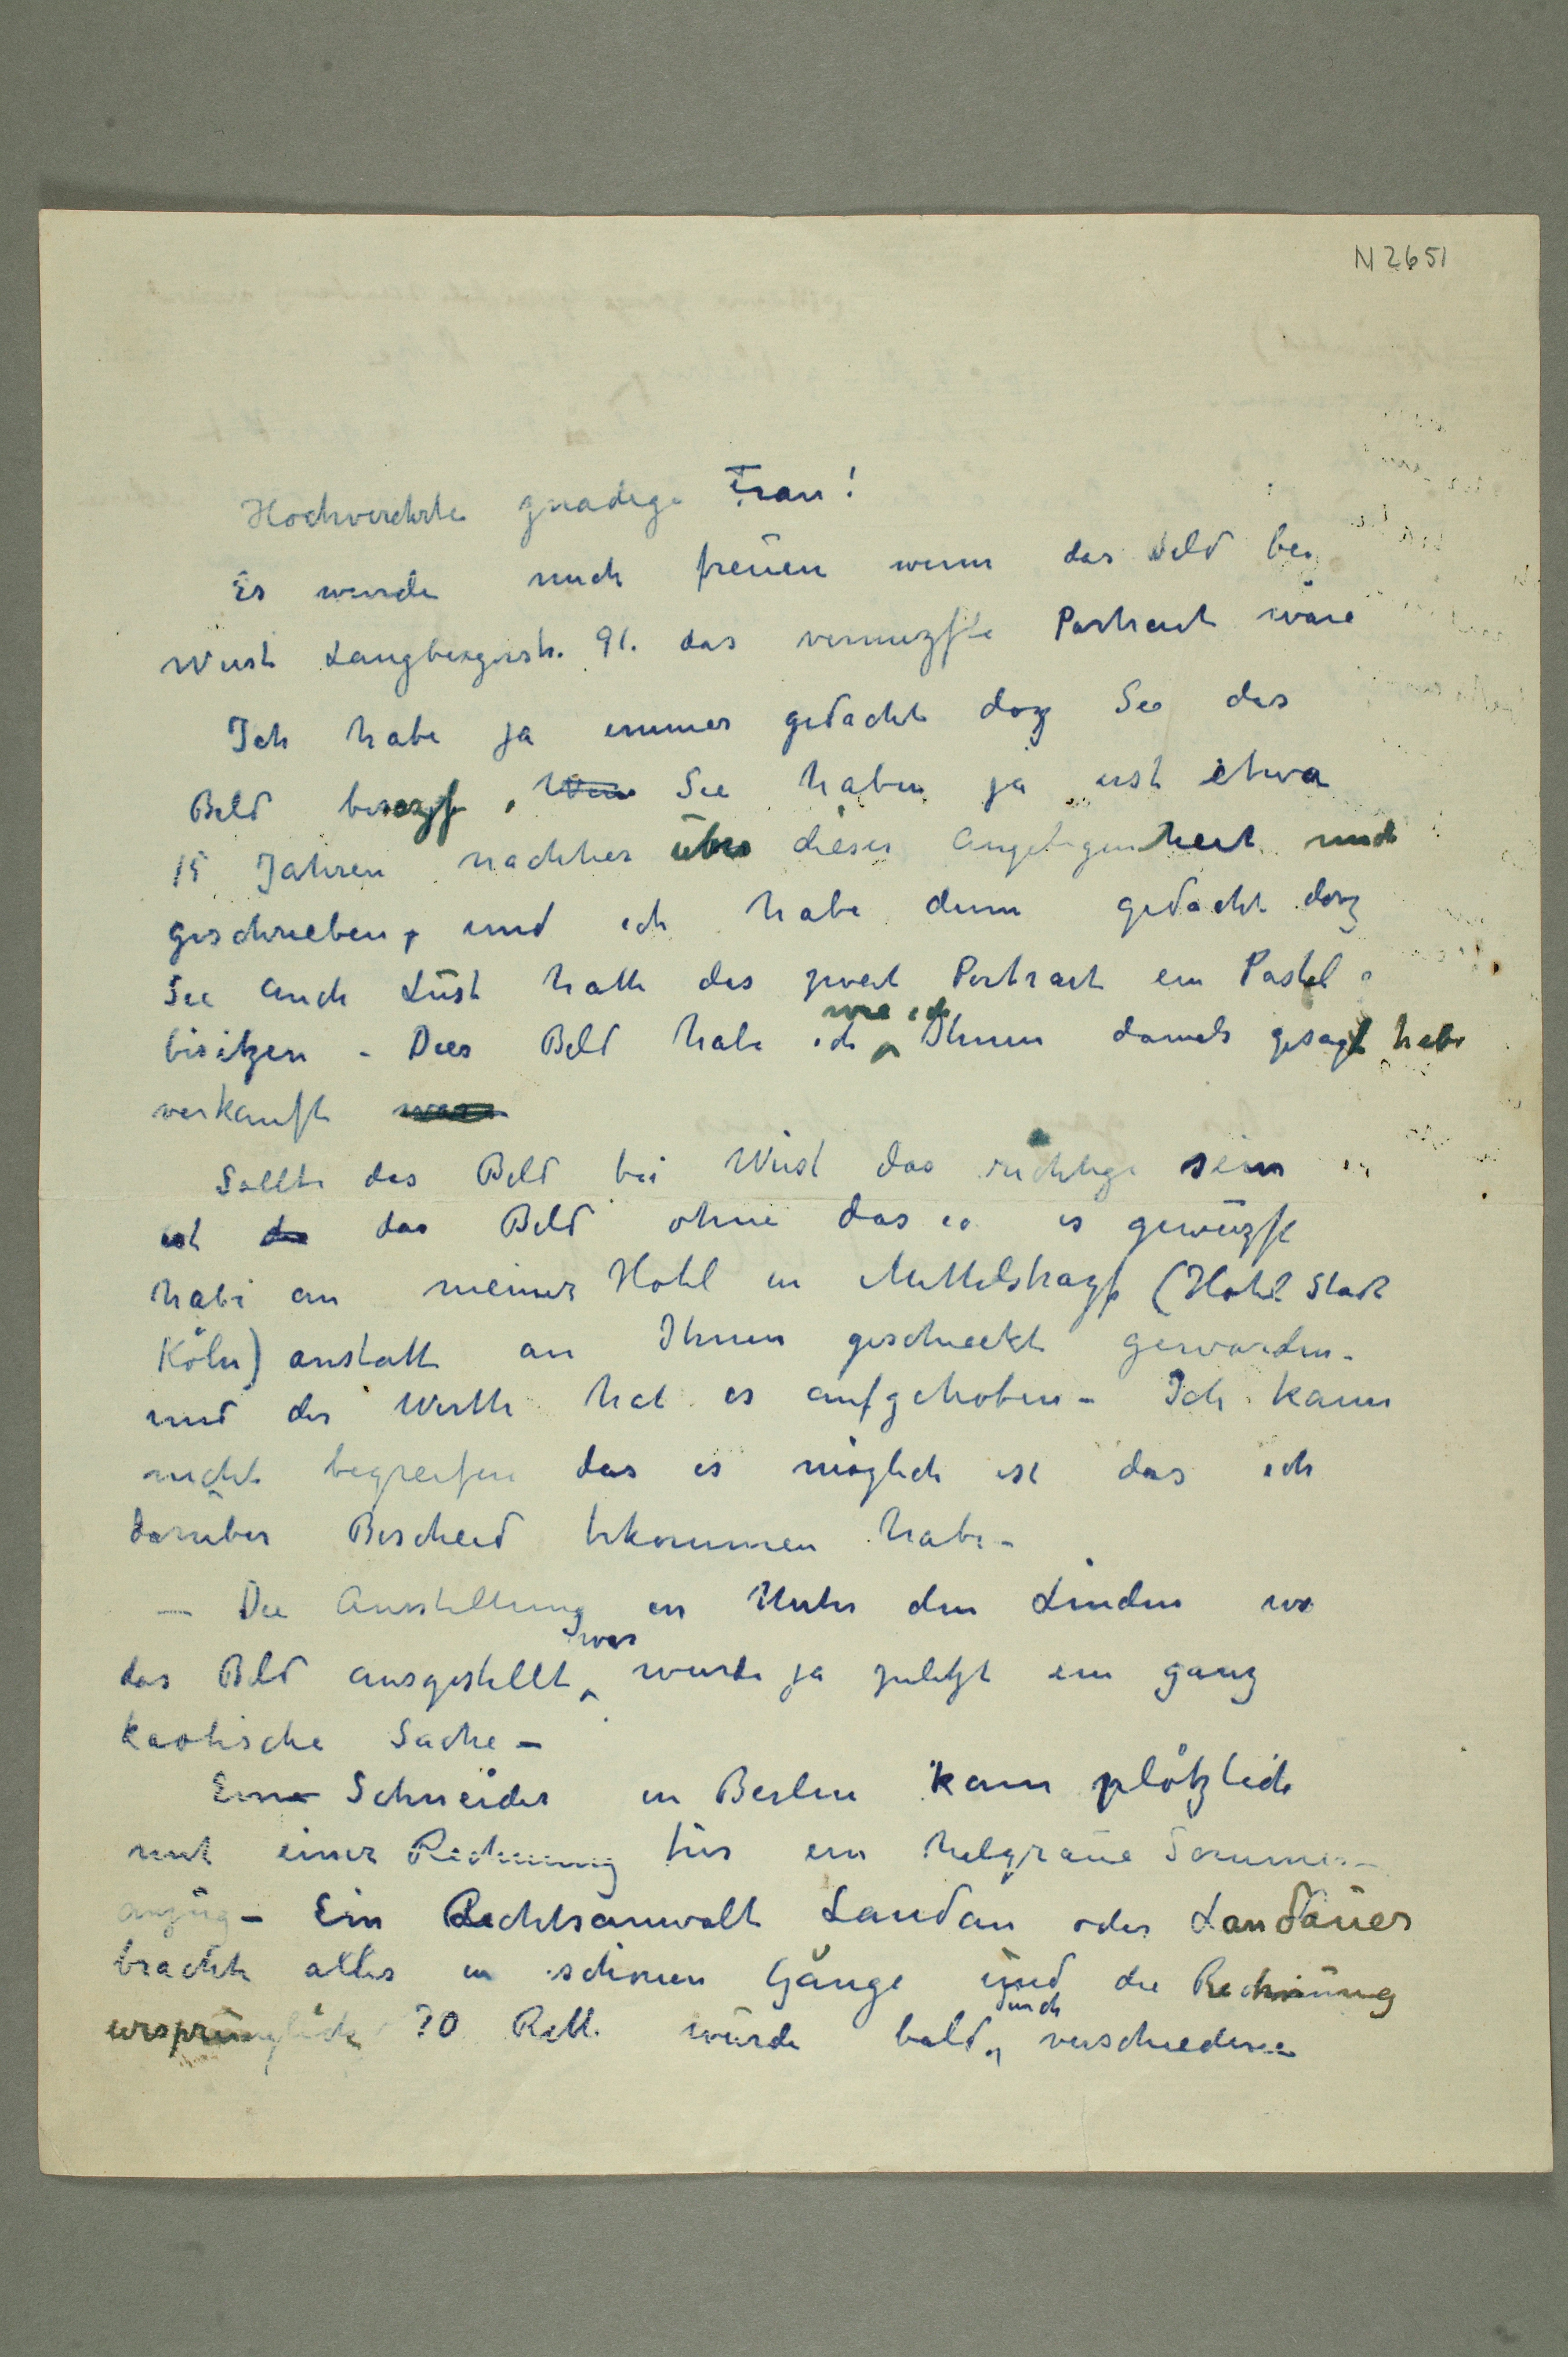 N 2651
Hochverehrte gnadige Frau!
Es wurde mich freuen wenn das Bild bei
Wust Langbergerstr. 91. das vermuzste Portrait wäre
Ich habe ja immer gedacht dasz Sie das
Bild besaszs, Wen Sie haben ja erst etwa
15 Jahren nachher über dieser Angelegenheit mich
geschrieben, und ich habe denn gedacht dasz
Sie auch Lust hatte das zweit Portrait ein Pastel
besitzen – Dies Bild habe ich wie ich Ihnen damals gesagt habe
verkauft
Sollte das Bild bei Wüst das richtige sein
ist das Bild ohne das ich es gewuszt
habe an meiner Hotel in Mittelstrasze (Hotel Stadt
Köln) anstatt an Ihnen geschieckt geworden –
und der Werth hat es aufgehoben – Ich kann
nicht begreifen das es möglich ist das ich
darüber Bescheid bekommen habe –
– Die Ausstellung in Unter den Linden wo
das Bild ausgestellt war wurde ja zuletzt ein ganz
kaotische Sache –
Eine Schneider in Berlin kam plötzlich
mit einer Rechnung für ein helgraue Sommer–
anzug – Ein Rechtsanwalt Landau oder Landauer
brachte alles in schönen Gänge und die Rechnung
ursprünglich 70 RM. wurde bald durch verschiedene